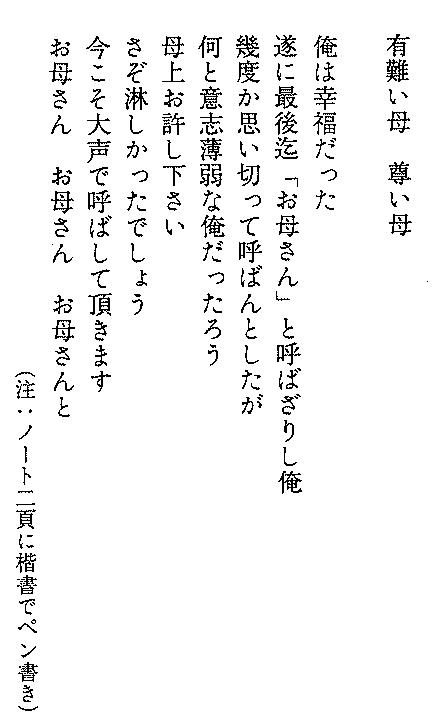 有難い母　尊い母
俺は幸福だった
遂に最後迄「お母さん」と呼ばざりし俺
幾度か思い切って呼ばんとしたが
何と意志薄弱な俺だったろう
母上お許し下さい
さぞ淋しかったでしょう
今こそ大声で呼ばして頂きます
お母さん　お母さん　お母さんと
（注：ノート二頁に楷書でペン書き）